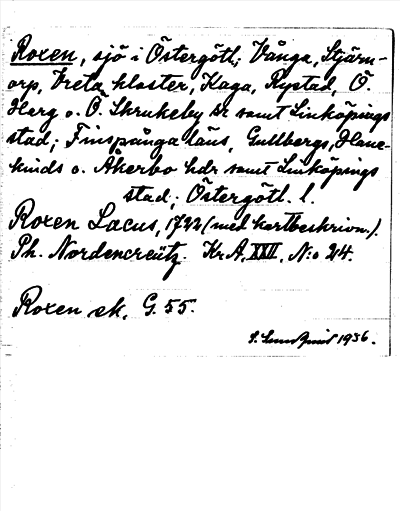 Roxen, sjö i Östergötl; Vånga, Stjärn-
orp, Vreta kloster, Kaga, Rystad, Ö.
Harg o. Ö. Skrukeby sr samt Linköpings
stad; Finspånga läns, Gullbergs, Hane-
kinds o. Åkerbo hdr samt Linköpings
stad; Östergötl. l.
Roxen Lacus, 1722 (med kartbeskrivn.).
Ph. Nordencreutz. Kr.A. XXII, N:o 24.
Roxen ek. G. 55.
1936.